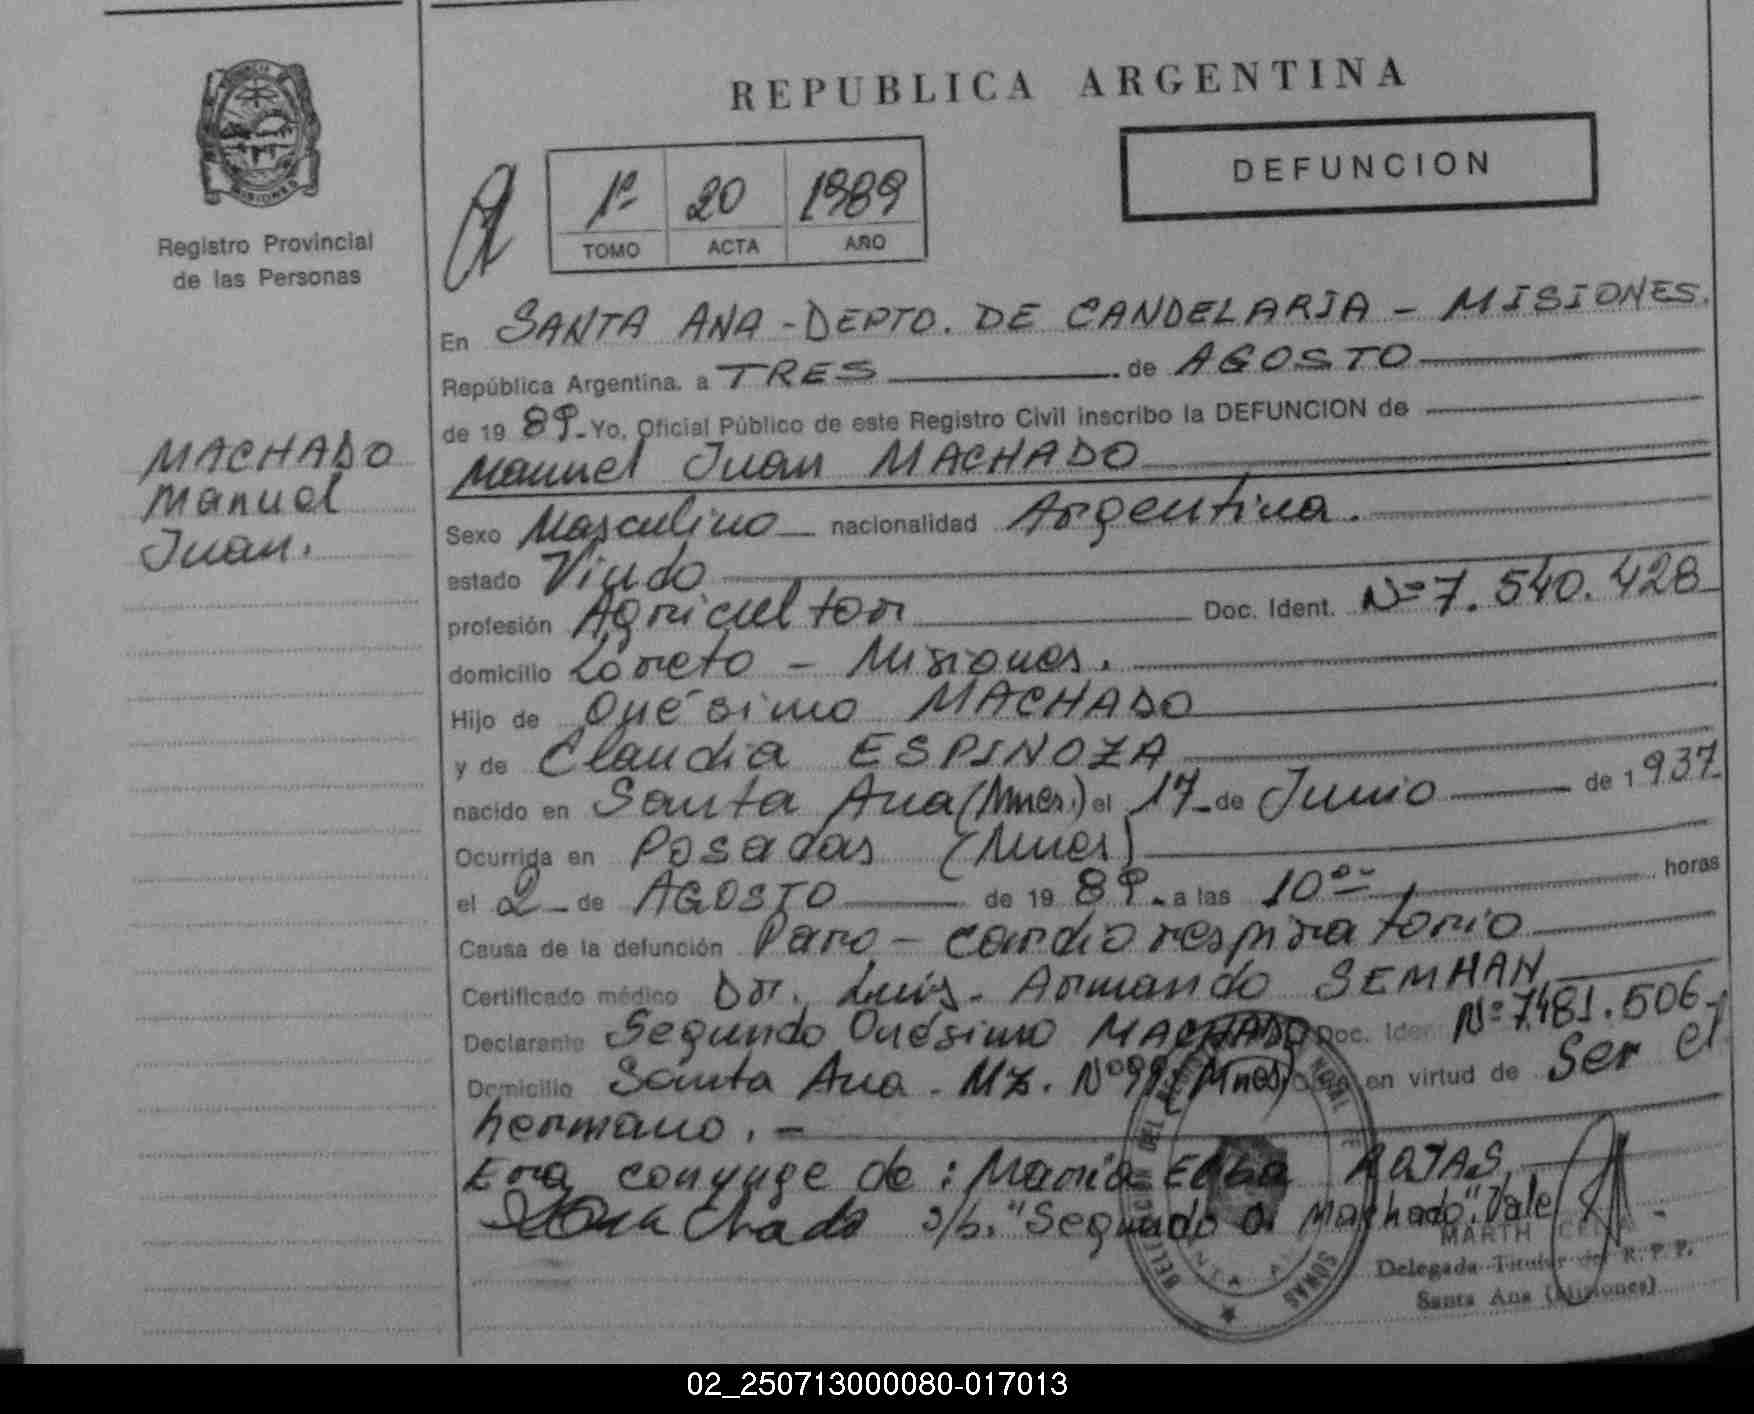 REPUBLICA ARGENTINA
DEFUNCION
MISIONES
Registro Provincial
de las Personas
1º 20 1989
TOMO ACTA AÑO
En SANTA ANA - DEPTO. DE CANDELARIA - MISIONES.
República Argentina. a TRES de AGOSTO
de 1989.- Yo, Oficial Público de este Registro Civil inscribo la DEFUNCION de
Manuel Juan MACHADO
MACHADO
Manuel
Juan.
Sexo Masculino nacionalidad Argentina.
estado Viudo
profesión Agricultor Doc. Ident. Nº 7.540.428
domicilio Loreto - Misiones.
Hijo de Onésimo MACHADO
y de Claudia ESPINOZA
nacido en Santa Ana (Mnes.) el 17 de Junio de 1937
Ocurrida en Posadas (Mnes)
el 2 de AGOSTO de 1989. a las 10 horas
Causa de la defunción Paro - cardio respiratorio
Certificado médico Dr. Luis Armando SEMHAN
Declarante Segundo Onésimo MACHADO Doc. Ident. Nº 7.481.506
Domicilio Santa Ana - Mz. Nº 99 (Mnes) en virtud de Ser el
hermano. -
Era conyuge de: María Elba ROJAS
s/b. "Segundo O. Machado". Vale
MARTH
Delegada Titular del R. P. P.
Santa Ana (Misiones)
02_250713000080-017013